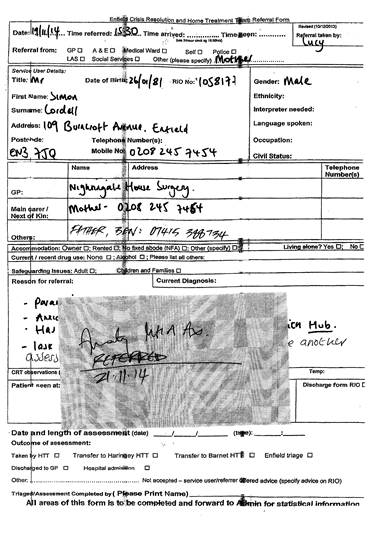 Enfield Crisis Resolution and Home Treatment Team Referral Form
Revised (10/12/2013)
Date: 19/11/14 Time referred: 15:30 Time arrived: Time seen: Referral taken by: Lucy
Referral from: GP □ A & E □ Medical Ward □ Self □ Police □
LAS □ Social Services □ Other (please specify) Mother
Service User Details:
Title: Mr Date of Birth: 26/01/81 RIO No: Gender: Male
First Name: Simon Ethnicity:
Surname: Cordell Interpreter needed:
Address: 109 Burncroft Avenue, Enfield Language spoken:
Postcode: Telephone Number(s): Occupation:
EN3 7JQ Mobile No: 0208 245 7454 Civil Status:
Name Address Telephone Number(s)
GP: Nightingale House Surgery.
Main carer / Next of Kin: Mother - 0208 245 7454
Others: FATHER, BEN: 07415
Accommodation: Owner □ Rented □ No fixed abode (NFA) □ Other (specify) □ Living alone? Yes □; No □
Current / recent drug use: None □ ; Alcohol □ ; Please list all others:
Safeguarding Issues: Adult □; Children and Families □
Reason for referral: Current Diagnosis:
Hub.
another
REFERRED
21.11.14
CRT observations ( Temp:
Patient seen at: Discharge form RIO □
Date and length of assessment (date) ____/____/____ (time):
Outcome of assessment:
Taken by HTT □ Transfer to Haringey HTT □ Transfer to Barnet HTT □ Enfield triage □
Discharged to GP □ Hospital admission □
Other: Not accepted – service user/referrer offered advice (specify advice on RIO)
Triaged/Assessment Completed by ( Please Print Name)
All areas of this form is to be completed and forward to Admin for statistical information